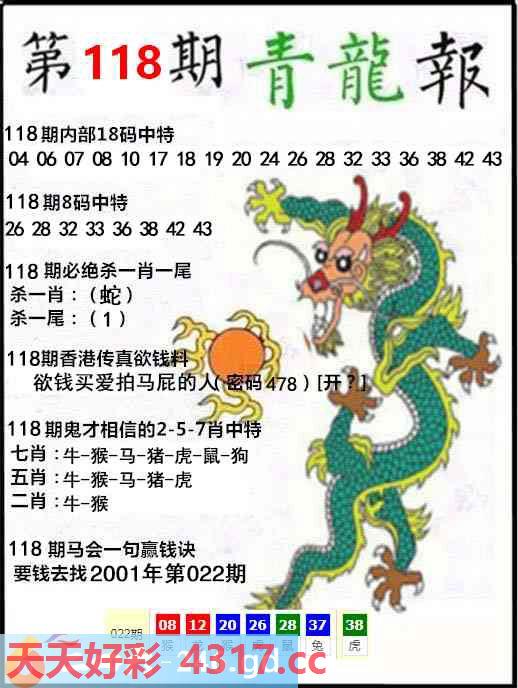 第118期青龍報
118期内部18码中特
04 06 07 08 10 17 18 19 20 24 26 28 32 33 36 38 42 43
118期8码中特
26 28 32 33 36 38 42 43
118期必绝杀一肖一尾
杀一肖：（蛇）
杀一尾：（1）
118期香港传真欲钱料
欲钱买爱拍马屁的人（密码478）[开？]
118期鬼才相信的2-5-7肖中特
七肖：牛-猴-马-猪-虎-鼠-狗
五肖：牛-猴-马-猪-虎
二肖：牛-猴
118期马会一句赢钱诀
要钱去找2001年第022期
022期 08 12 20 26 28 37 38
猴 龙 猴 虎 鼠 兔 虎
天天好彩-4317.cc